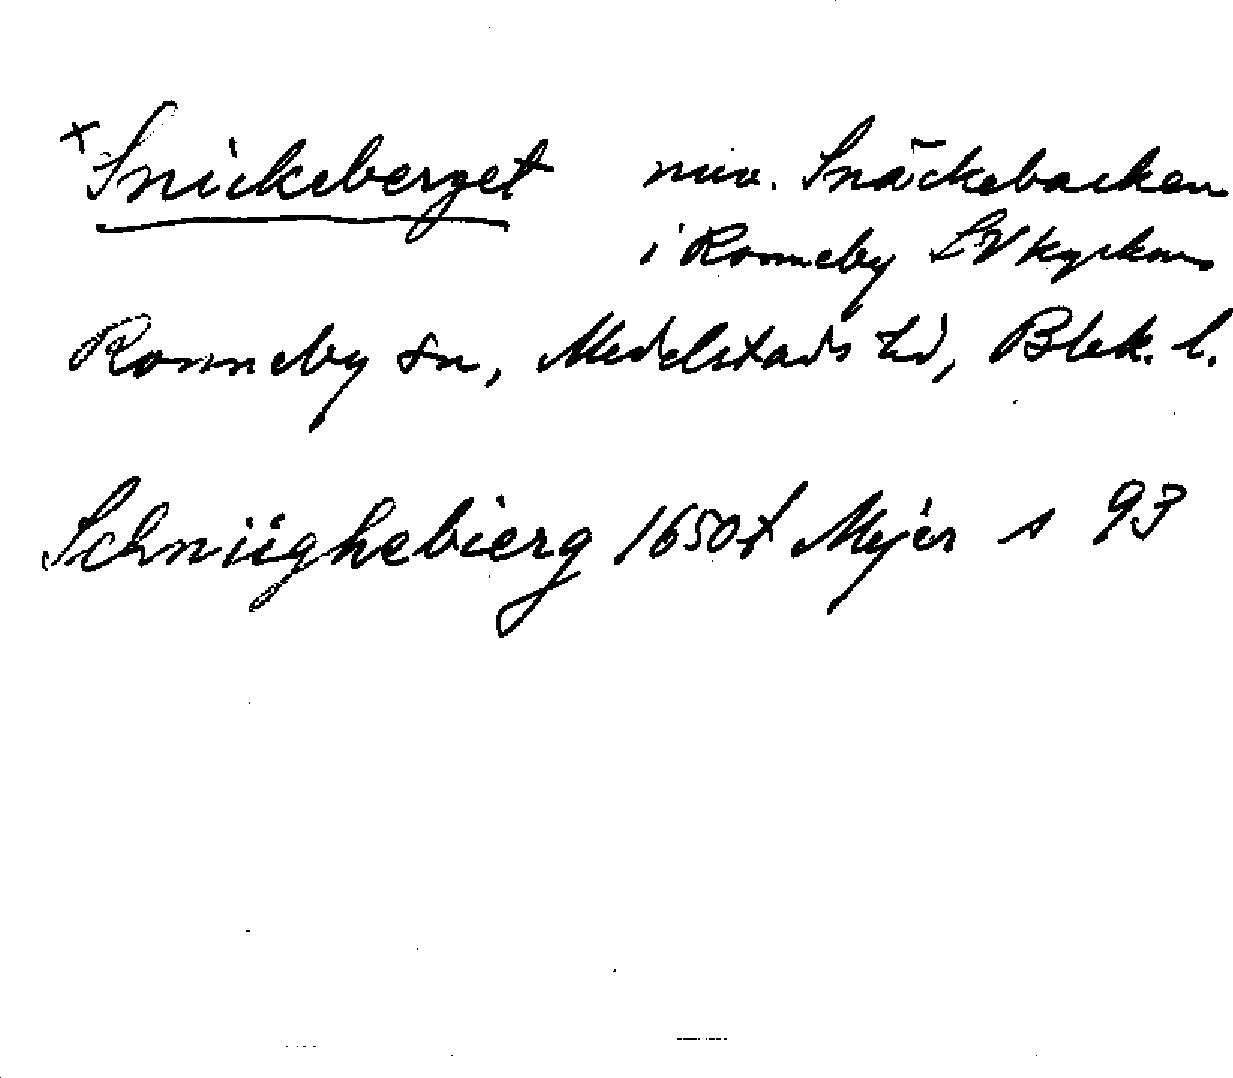 × Snickeberget nuv. Snäckebacken
i Ronneby SV kyrkan
Ronneby sn, Medelstads hd, Blek. l.
Schniighebierg 1650t Mejer s 93